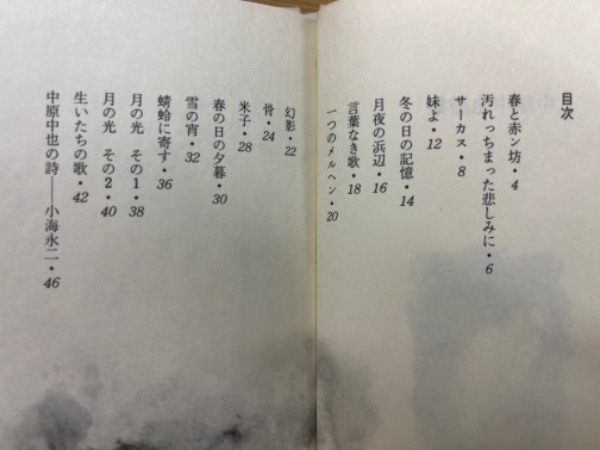 目次
春と赤ン坊・4
汚れっちまった悲しみに・6
サーカス・8
妹よ・12
冬の日の記憶・14
月夜の浜辺・16
言葉なき歌・18
一つのメルヘン・20
幻影・22
骨・24
米子・28
春の日の夕暮・30
雪の宵・32
蜻蛉に寄す・36
月の光 その1・38
月の光 その2・40
生いたちの歌・42
中原中也の詩――小海永二・46